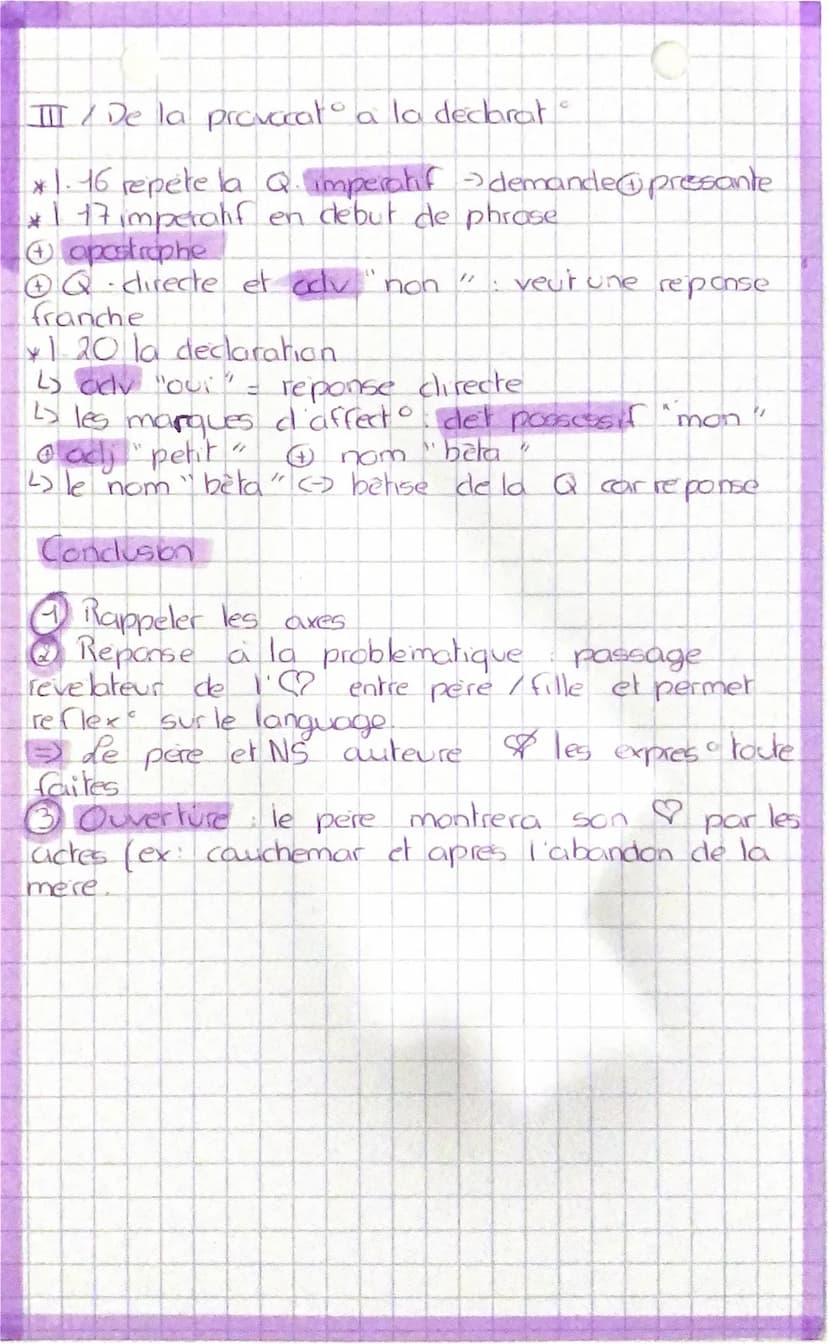 III / De la provocat° a la declarat°
* l. 16 repete la Q. imperatif -> demande ⊕ pressante
* l 17 imperatif en debut de phrase
⊕ apostrophe
⊕ Q. directe et adv "non" : veut une reponse
franche
* l. 20 la declaration
↳ adv "oui" = reponse directe
↳ les marques d'affect° : det possessif "mon"
⊕ adj "petit" ⊕ nom "bêta"
↳ le nom "bêta" <-> betise de la Q car reponse
Conclusion
① Rappeler les axes
② Reponse à la problematique : passage
revelateur de l'♡ entre pere / fille et permet
reflex° sur le language.
=> Le pere et NS auteure les expres° toute
faites
③ Ouverture : le pere montrera son ♡ par les
actes (ex: cauchemar et apres l'abandon de la
mere.